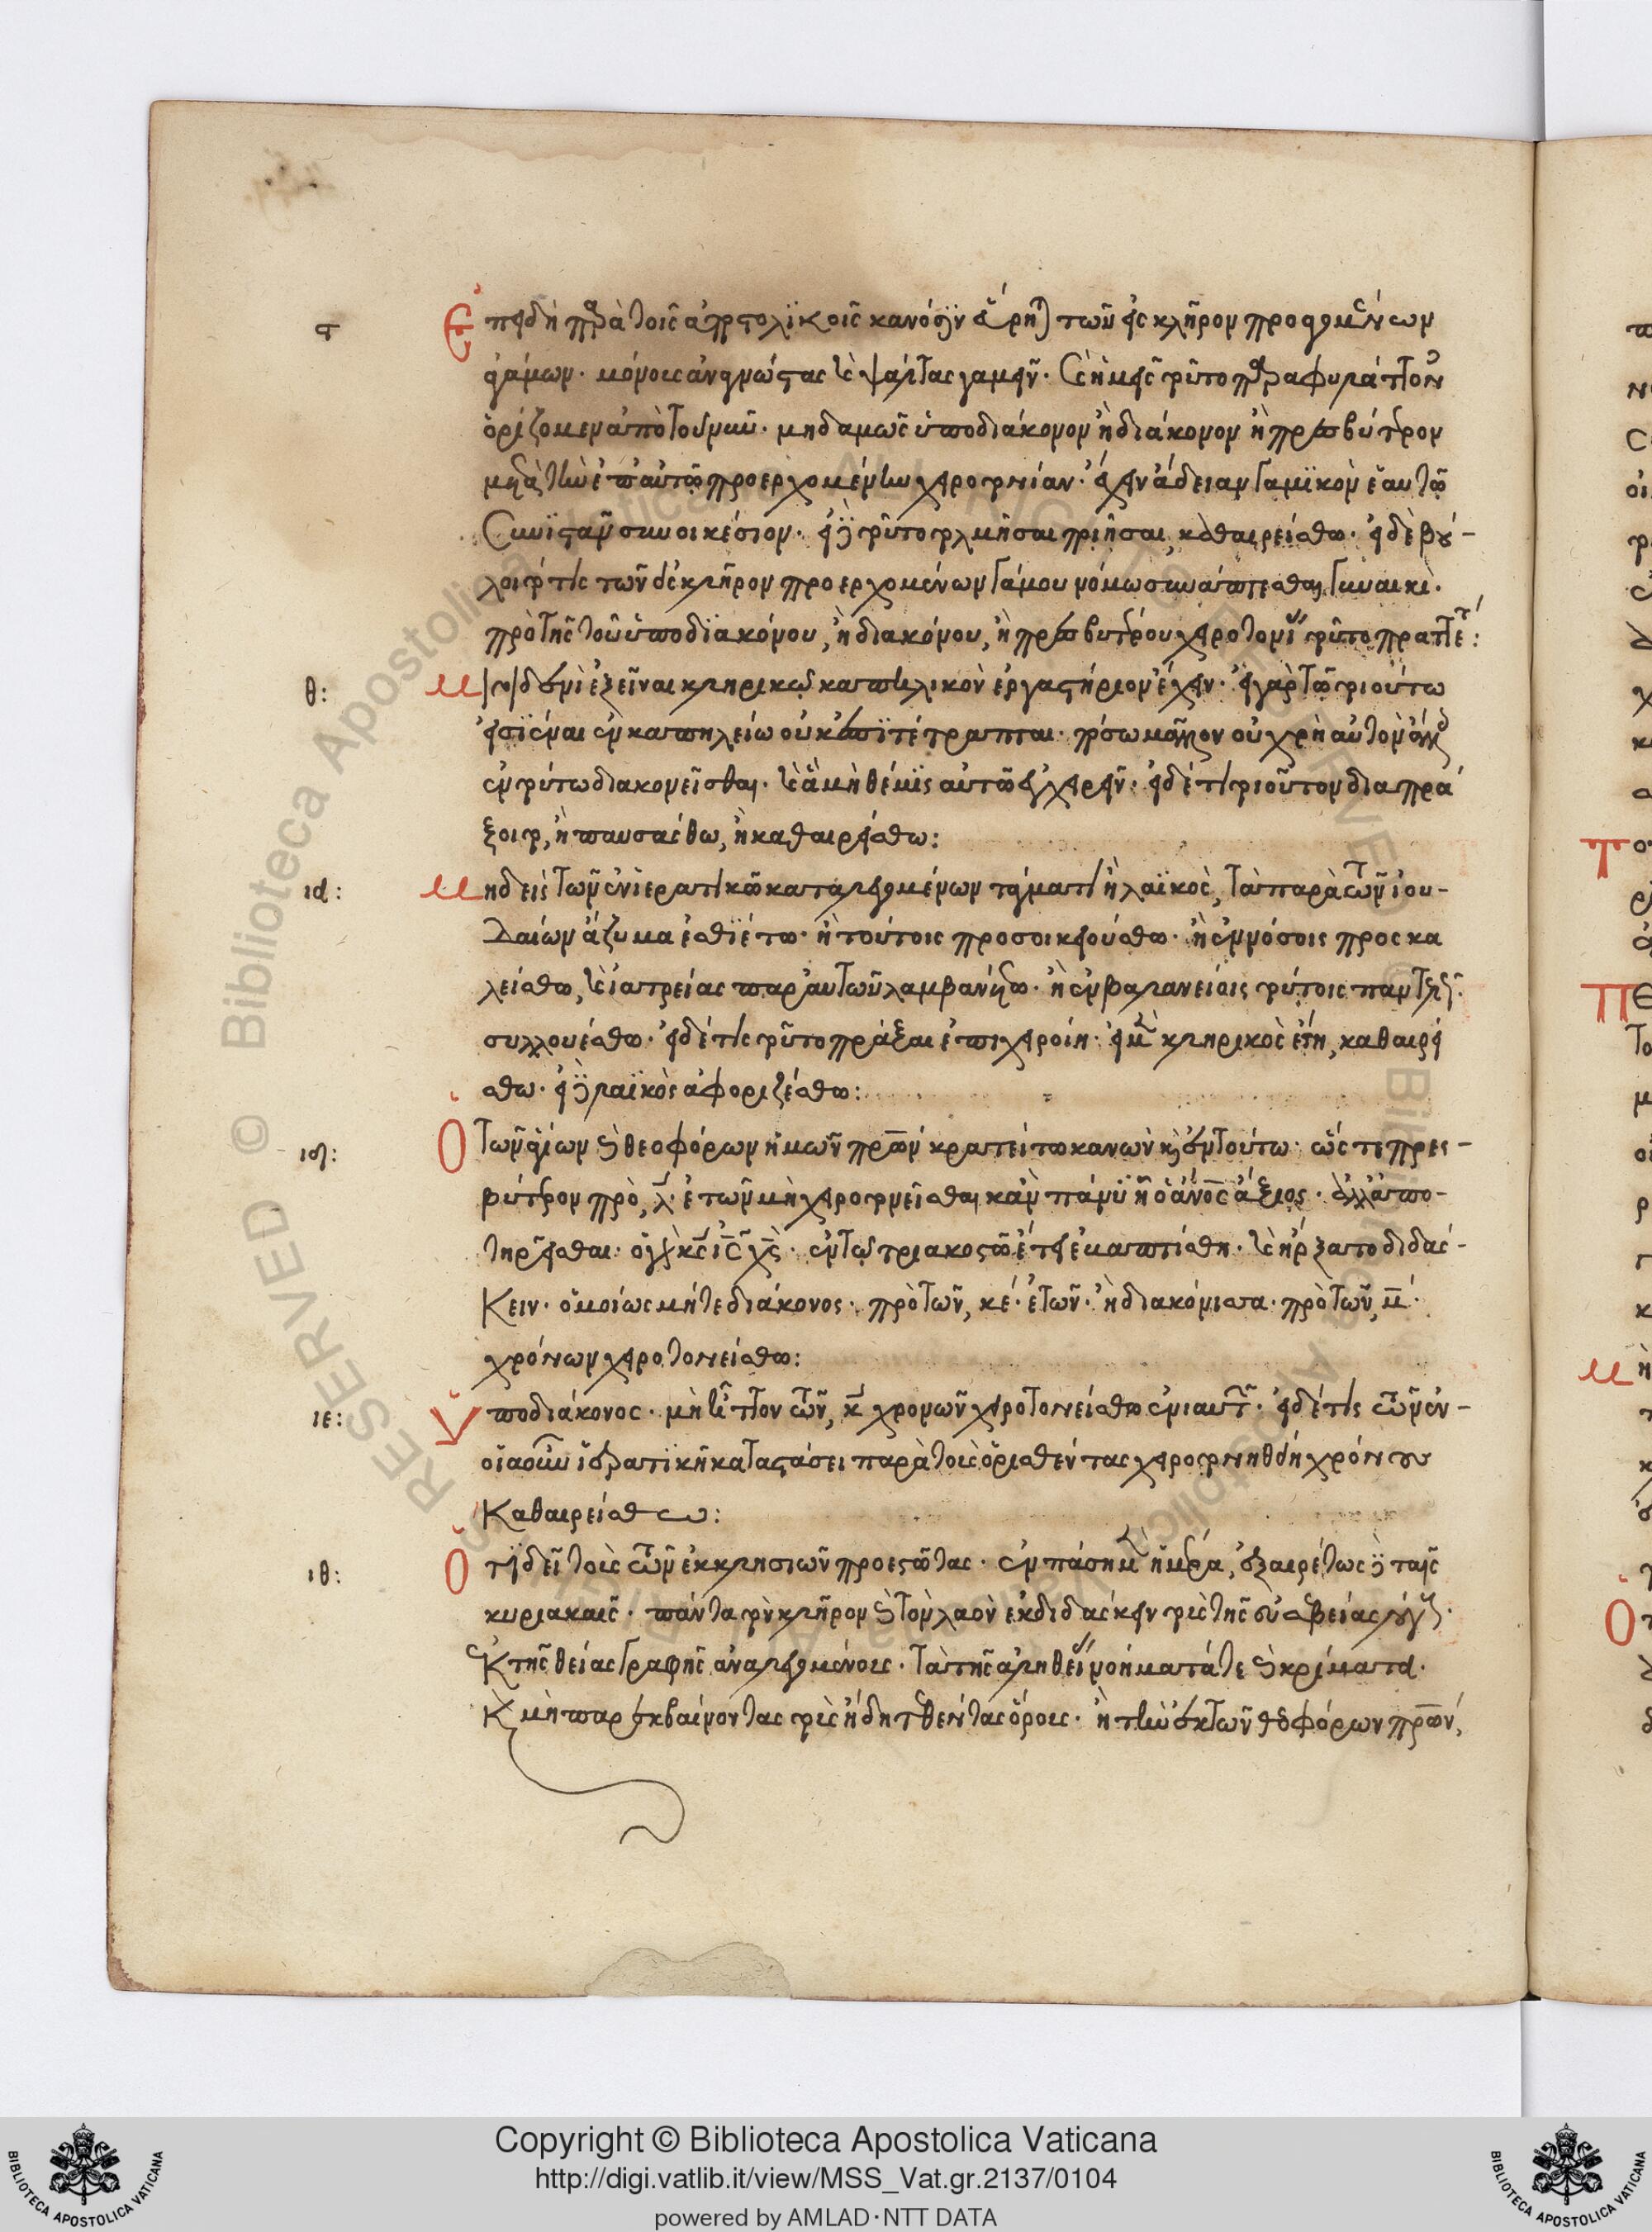 ϛ Ἐπειδὴ παρὰ τοῖς ἀποστολικοῖς κανόσιν εὕρηται τῶν εἰς κλῆρον προαγομένων
ἀγάμων· μόνους ἀναγνώστας καὶ ψάλτας γαμεῖν· καὶ ἡμεῖς τοῦτο παραφυλάττοντες
ὁρίζομεν ἀπὸ τοῦ νῦν· μηδαμῶς ὑποδιάκονον ἢ διάκονον ἢ πρεσβύτερον
μετὰ τὴν ἐπ' αὐτῷ προερχομένην χειροτονίαν· ἔχειν ἄδειαν γαμικὸν ἑαυτῷ
συνιστᾶν συνοικέσιον· εἰ δὲ τοῦτο τολμήσαι ποιῆσαι, καθαιρείσθω· εἰ δὲ βού-
λοιτό τις τῶν εἰς κλῆρον προερχομένων γάμου νόμω συνάπτεσθαι γυναικὶ·
πρὸ τῆς τοῦ ὑποδιακόνου, ἢ διακόνου, ἢ πρεσβυτέρου χειροτονίας τοῦτο πραττέτω:
θ: Μηδενὶ ἐξεῖναι κληρικῷ καπηλικὸν ἐργαστήριον ἔχειν· εἰ γὰρ τῶ τοιούτω
εἰσιέναι ἐν καπηλείω οὐκ ἐπιτέτραπται· πόσω μᾶλλον οὐ χρὴ αὐτὸν ἄλλοις
ἐν τούτω διακονεῖσθαι· καὶ ἃ μὴ θέμις αὐτῶ ἐγχειρεῖν· εἰ δέ τι τοιοῦτον διαπρά
ξοιτο, ἢ παυσάσθω, ἢ καθαιρείσθω:
ια: Μηδεὶς τῶν ἐν ἱερατικῶ καταλεγομένων τάγματι ἢ λαϊκὸς, τὰ παρὰ τῶν ἰου-
δαίων ἄζυμα ἐσθιέτω· ἢ τούτοις προσοικειούσθω· ἢ ἐν νόσοις προσκα
λείσθω, καὶ ἰατρείας παρ' αὐτῶν λαμβανέτω· ἢ ἐν βαλανείοις τούτοις παντελῶς
συλλουέσθω· εἰ δέ τις τοῦτο πρᾶξαι ἐπιχειροίη· εἰ μὲν κληρικὸς εἴη, καθαιρεί
σθω· εἰ δὲ λαϊκὸς ἀφοριζέσθω:
ιδ: Ὁ τῶν ἁγίων καὶ θεοφόρων ἡμῶν πρων κρατείτω κανὼν καὶ ἐν τούτω· ὥστε πρεσ-
βύτερον πρὸ, λ· ἐτῶν μὴ χειροτονεῖσθαι κἂν πάνυ ᾖ ὁ ἄνος ἄξιος· ἀλλ' ἀπο-
τηρεῖσθαι· ὁ γὰρ κς ις χς· ἐν τῷ τριακοστῶ ἔτει ἐβαπτίσθη· καὶ ἤρξατο διδάσ-
κειν· ὁμοίως μήτε διάκονος· πρὸ τῶν, κε· ἐτῶν· ἢ διακόνισσα· πρὸ τῶν, μ·
χρόνων χειροτονείσθω:
ιε: Ὑποδιάκονος· μὴ ἧττον τῶν, κ χρονῶν χειροτονείσθω ἐνιαυτῶν· εἰ δέ τις τῶν ἐν-
οἱαοῦν ἱερατικῆ καταστάσει παρὰ τοὺς ὁρισθέντας χειροτονηθείη χρόνους
καθαιρείσθω:
ιθ: Ὅτι δεῖ τοὺς τῶν ἐκκλησιῶν προεστῶτας· ἐν πάση μὲν ἡμέρα, ἐξαιρέτως δὲ ταῖς
κυριακαῖς· πάντα τὸν κλῆρον καὶ τὸν λαὸν ἐκδιδάσκειν τοὺς τῆς εὐσεβείας λόγους·
ἐκ τῆς θείας γραφῆς ἀναλεγομένους· τὰ τῆς ἀληθείας νοήματά τε καὶ κρίματα·
καὶ μὴ παρεκβαίνοντας τοὺς ἤδη τεθέντας ὅρους· ἢ τὴν ἐκ τῶν θεοφόρων πρων,
Copyright © Biblioteca Apostolica Vaticana
http://digi.vatlib.it/view/MSS_Vat.gr.2137/0104
powered by AMLAD·NTT DATA